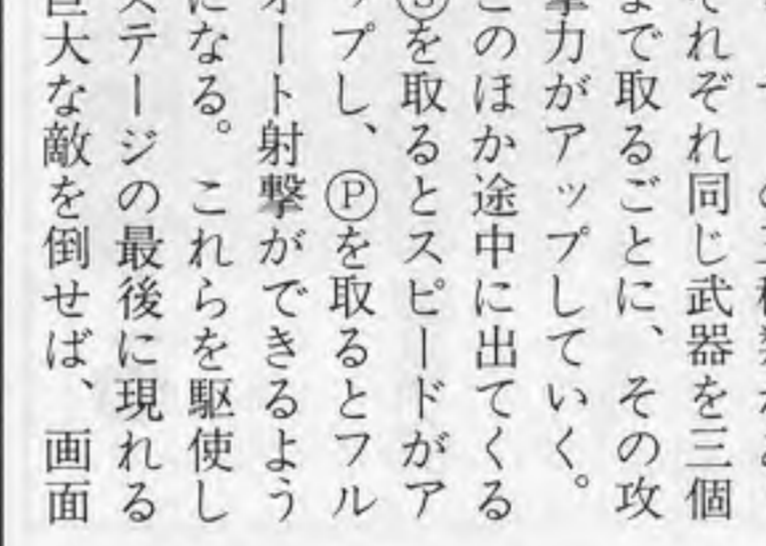 それぞれ同じ武器を三個
まで取るごとに、その攻
撃力がアップしていく。
このほか途中に出てくる
Ⓢを取るとスピードがア
ップし、Ⓟを取るとフル
オート射撃ができるよう
になる。これらを駆使し
ステージの最後に現れる
巨大な敵を倒せば、画面